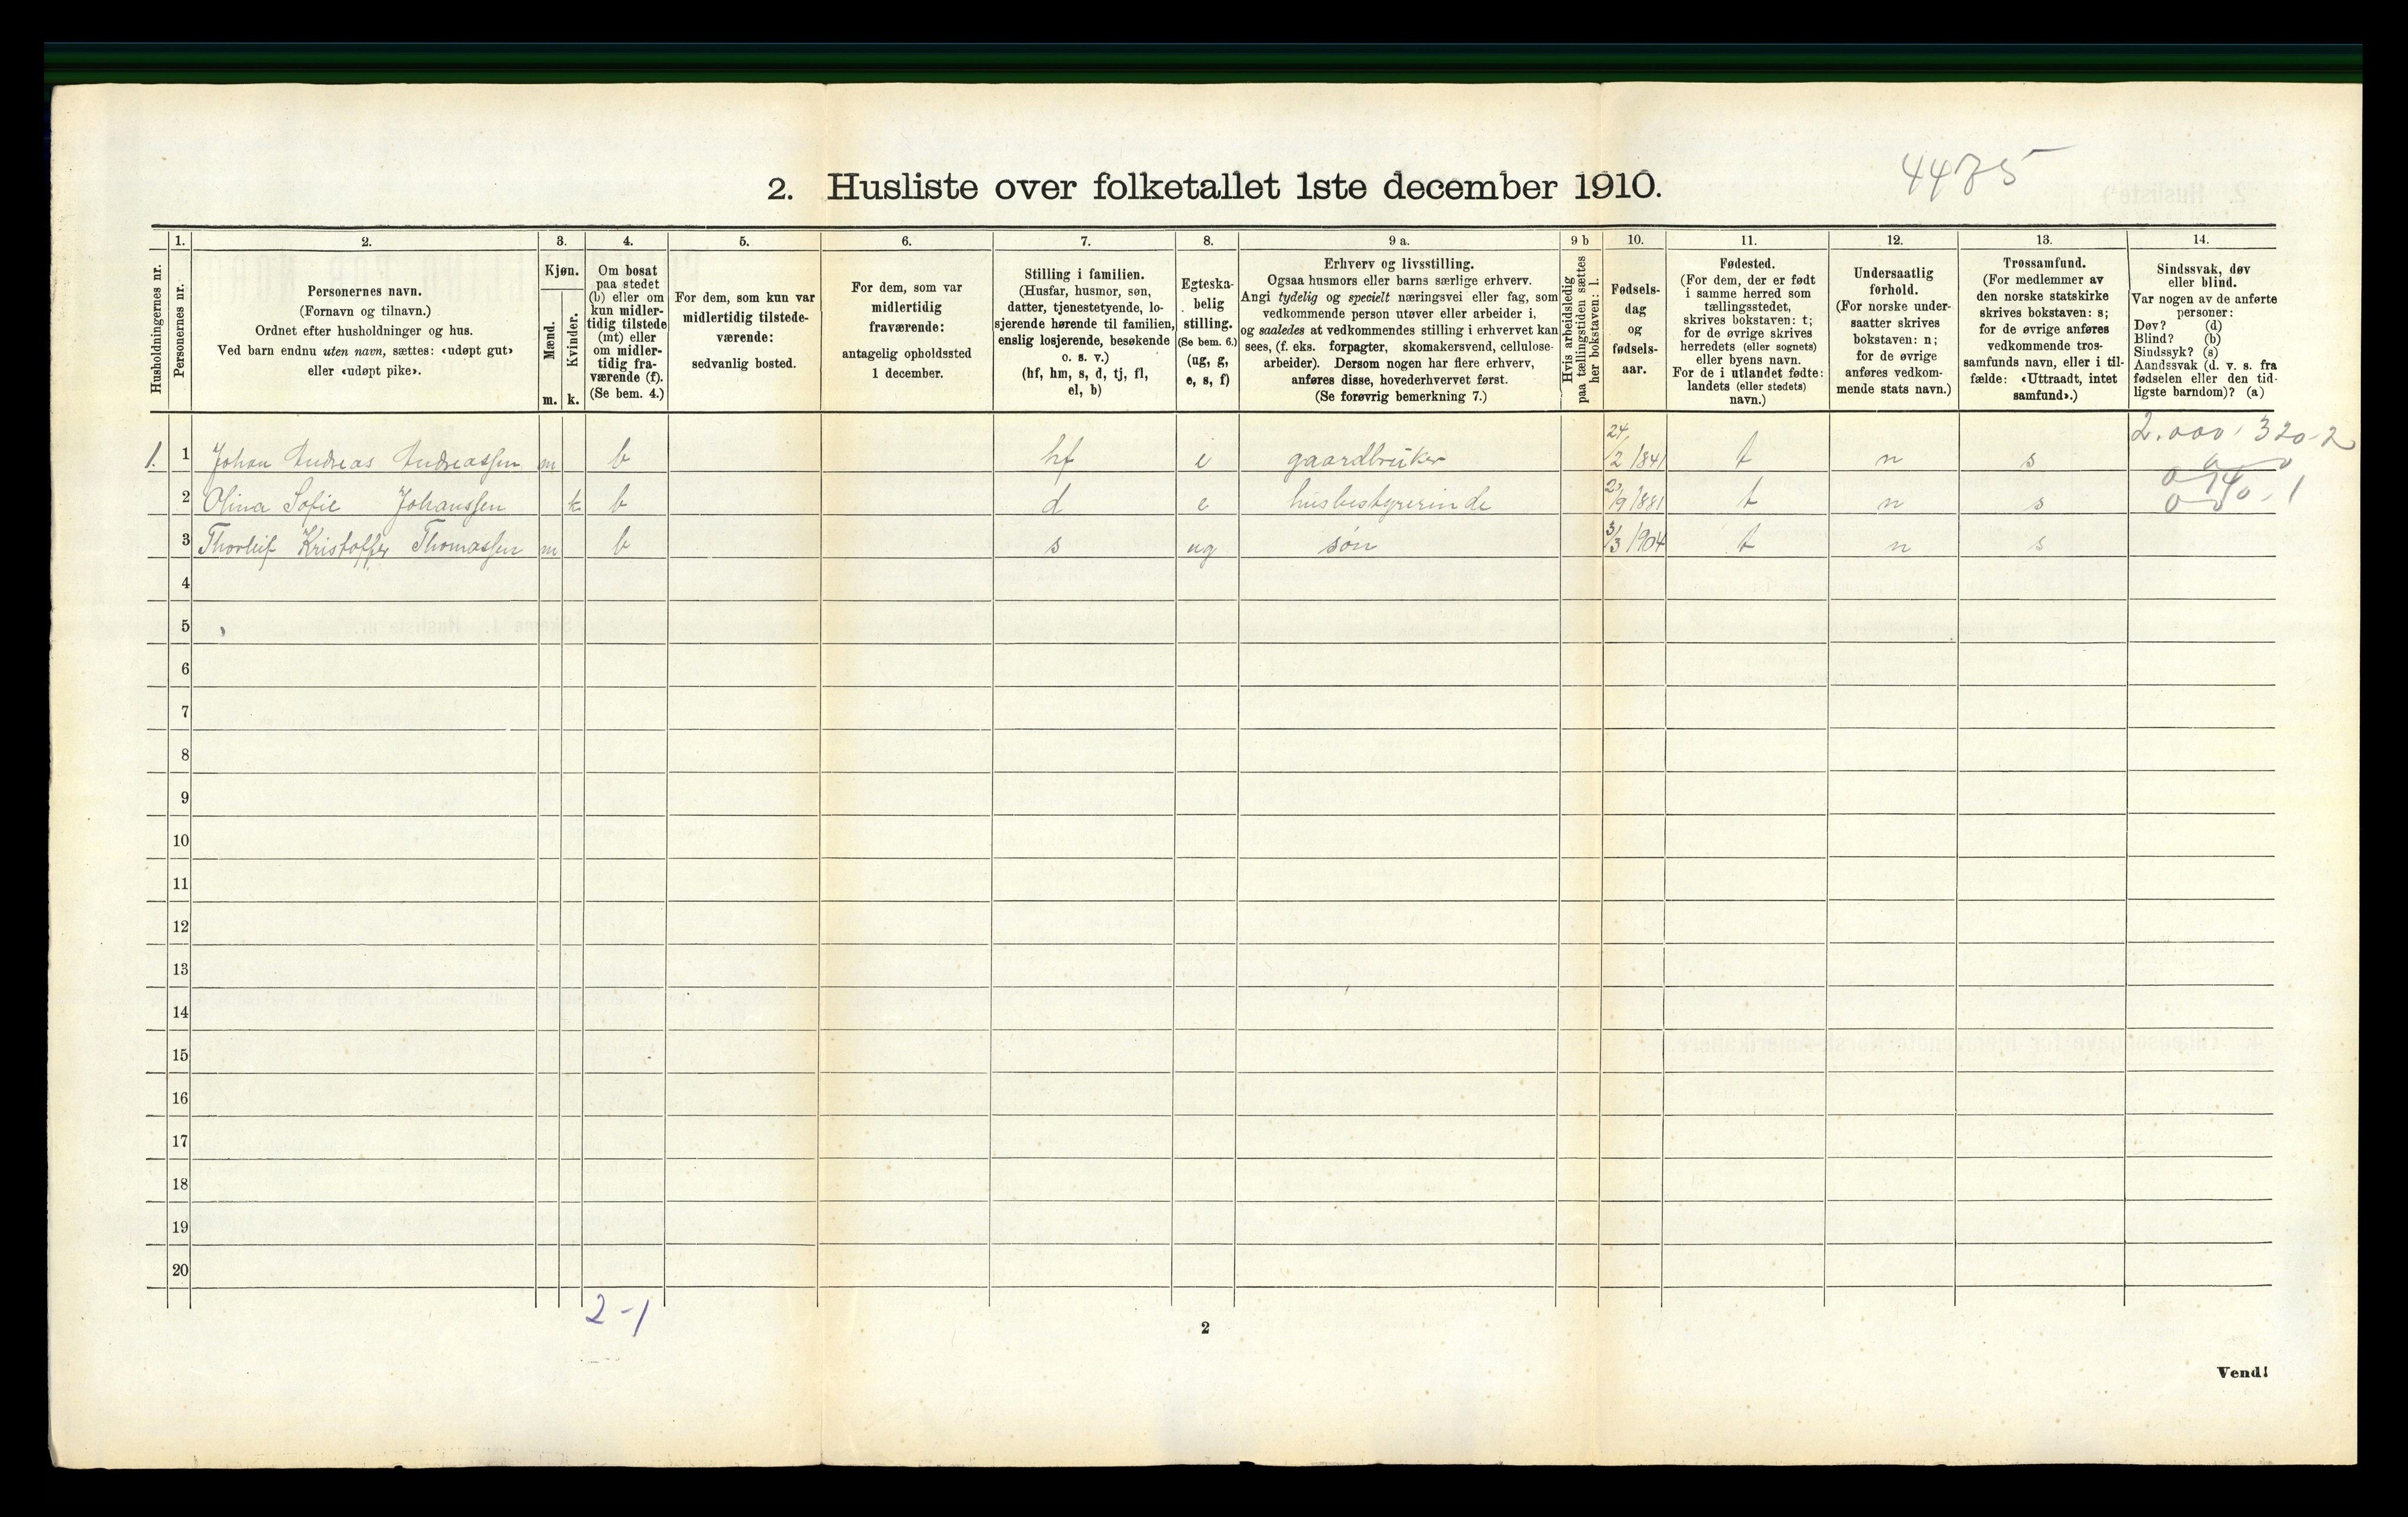 4475
2. Husliste over folketallet 1ste december 1910.
Husholdningernes nr.
1.
Personernes nr.
2.
Personernes navn.
(Fornavn og tilnavn.)
Ordnet efter husholdninger og hus.
Ved barn endnu uten navn, sættes: «udøpt gut»
eller «udøpt pike».
3.
Kjøn.
Mænd.
Kvinder.
m. k.
4.
Om bosat
paa stedet
(b) eller om
kun midler-
tidig tilstede
(mt) eller
om midler-
tidig fra-
værende (f).
(Se bem. 4.)
5.
For dem, som kun var
midlertidig tilstede-
værende:
sedvanlig bosted.
6.
For dem, som var
midlertidig
fraværende:
antagelig opholdssted
1 december.
7.
Stilling i familien.
(Husfar, husmor, søn,
datter, tjenestetyende, lo-
sjerende hørende til familien,
enslig losjerende, besøkende
o. s. v.)
(hf, hm, s, d, tj, fl,
el, b)
8.
Egteska-
belig
stilling.
(Se bem. 6.)
(ug, g,
e, s, f)
9 a.
Erhverv og livsstilling.
Ogsaa husmors eller barns særlige erhverv.
Angi tydelig og specielt næringsvei eller fag, som
vedkommende person utøver eller arbeider i,
og saaledes at vedkommendes stilling i erhvervet kan
sees, (f. eks. forpagter, skomakersvend, cellulose-
arbeider). Dersom nogen har flere erhverv,
anføres disse, hovederhvervet først.
(Se forøvrig bemerkning 7.)
9 b
Hvis arbeidsledig
paa tællingstiden sættes
her bokstaven: l.
10.
Fødsels-
dag
og
fødsels-
aar.
11.
Fødested.
(For dem, der er født
i samme herred som
tællingsstedet,
skrives bokstaven: t;
for de øvrige skrives
herredets (eller sognets)
eller byens navn.
For de i utlandet fødte:
landets (eller stedets)
navn.)
12.
Undersaatlig
forhold.
(For norske under-
saatter skrives
bokstaven: n;
for de øvrige
anføres vedkom-
mende stats navn.)
13.
Trossamfund.
(For medlemmer av
den norske statskirke
skrives bokstaven: s;
for de øvrige anføres
vedkommende tros-
samfunds navn, eller i til-
fælde: «Uttraadt, intet
samfund».)
14.
Sindssvak, døv
eller blind.
Var nogen av de anførte
personer:
Døv? (d)
Blind? (b)
Sindssyk? (s)
Aandssvak (d. v. s. fra
fødselen eller den tid-
ligste barndom)? (a)
2.000 · 320-2
1. 1 Johan Andreas Andreassen m b hf e gaardbruker 24/2 1841 t n s
2 Olina Sofie Johanssen k b d e husbestyrerinde /9 1881 t n s
3 Thorleif Kristoffer Thomassen m b s ug søn 3/3 1904 t n s
4
5
6
7
8
9
10
11
12
13
14
15
16
17
18
19
20
2-1
2
Vend!